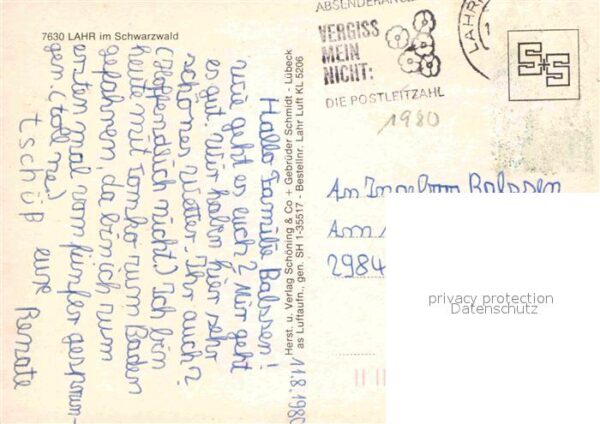 7630 LAHR im Schwarzwald
11.8.1980
Hallo Familie Balssen!
wie geht es euch? Mir geht
es gut. Wir haben hier sehr
schönes Wetter. Ihr auch?
(Hoffendlich nicht.) Ich bin
heute mit Tomko zum Baden
gefahren da bin ich zum
ersten mal vom fünfer gesprun-
gen. (toll ne)
tschüß
eure Renate
Herst. u. Verlag Schöning & Co + Gebrüder Schmidt - Lübeck
as Luftaufn., gen. SH 1-35517 - Bestellnr. Lahr Luft KL 5206
VERGISS
MEIN
NICHT:
DIE POSTLEITZAHL
LAHR
1980
S+S
An Ingeborg Balssen
Am
2984
privacy protection
Datenschutz